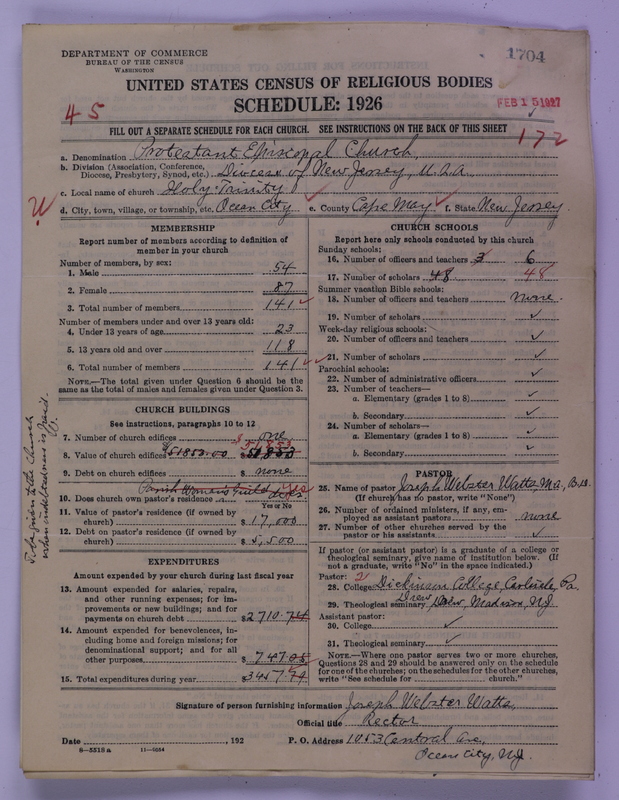 DEPARTMENT OF COMMERCE
BUREAU OF THE CENSUS
WASHINGTON
1704
UNITED STATES CENSUS OF RELIGIOUS BODIES
SCHEDULE: 1926
45
FEB 15 1927
FILL OUT A SEPARATE SCHEDULE FOR EACH CHURCH. SEE INSTRUCTIONS ON THE BACK OF THIS SHEET
172
a. Denomination Protestant Episcopal Church,
b. Division (Association, Conference,
Diocese, Presbytery, Synod, etc.) Diocese of New Jersey, U.S.A.
c. Local name of church Holy Trinity
d. City, town, village, or township, etc. Ocean City e. County Cape May f. State New Jersey.
MEMBERSHIP
Report number of members according to definition of
member in your church
Number of members, by sex:
1. Male 54
2. Female 87
3. Total number of members 141
Number of members under and over 13 years old:
4. Under 13 years of age 23
5. 13 years old and over 118
6. Total number of members 141
NOTE.—The total given under Question 6 should be the
same as the total of males and females given under Question 3.
CHURCH BUILDINGS
See instructions, paragraphs 10 to 12
7. Number of church edifices one
$51853
8. Value of church edifices $51853.00 $ 51853
9. Debt on church edifices $ none
Parish Women's Guild yes
10. Does church own pastor's residence does
Yes or No
11. Value of pastor's residence (if owned by
church) $ 17,000
12. Debt on pastor's residence (if owned by
church) $ 5,500
To be given to the church
when indebtedness is paid.
EXPENDITURES
Amount expended by your church during last fiscal year
13. Amount expended for salaries, repairs,
and other running expenses; for im-
provements or new buildings; and for
payments on church debt $2710.74
14. Amount expended for benevolences, in-
cluding home and foreign missions; for
denominational support; and for all
other purposes $ 747.05
15. Total expenditures during year $3457.79
CHURCH SCHOOLS
Report here only schools conducted by this church
Sunday schools:
16. Number of officers and teachers 3 6
17. Number of scholars 48 48
Summer vacation Bible schools:
18. Number of officers and teachers none.
19. Number of scholars
Week-day religious schools:
20. Number of officers and teachers
21. Number of scholars
Parochial schools:
22. Number of administrative officers
23. Number of teachers—
a. Elementary (grades 1 to 8)
b. Secondary
24. Number of scholars—
a. Elementary (grades 1 to 8)
b. Secondary
PASTOR
25. Name of pastor Joseph Webster Watts, M.A., B.D.
(If church has no pastor, write "None")
26. Number of ordained ministers, if any, em-
ployed as assistant pastors none
27. Number of other churches served by the
pastor or his assistants
If pastor (or assistant pastor) is a graduate of a college or
theological seminary, give name of institution below. (If
not a graduate, write "No" in the space indicated.)
Pastor: 2
28. College Dickinson College, Carlisle, Pa.
Drew
29. Theological seminary Drew, Madison, N.J.
Assistant pastor:
30. College
31. Theological seminary
NOTE.—Where one pastor serves two or more churches,
Questions 28 and 29 should be answered only on the schedule
for one of the churches; on the schedules for the other churches,
write "See schedule for church."
Signature of person furnishing information Joseph Webster Watts,
Official title Rector
Date , 192 P. O. Address 1053 Central Ave,
Ocean City, N.J.
8-5518 a 11-9054